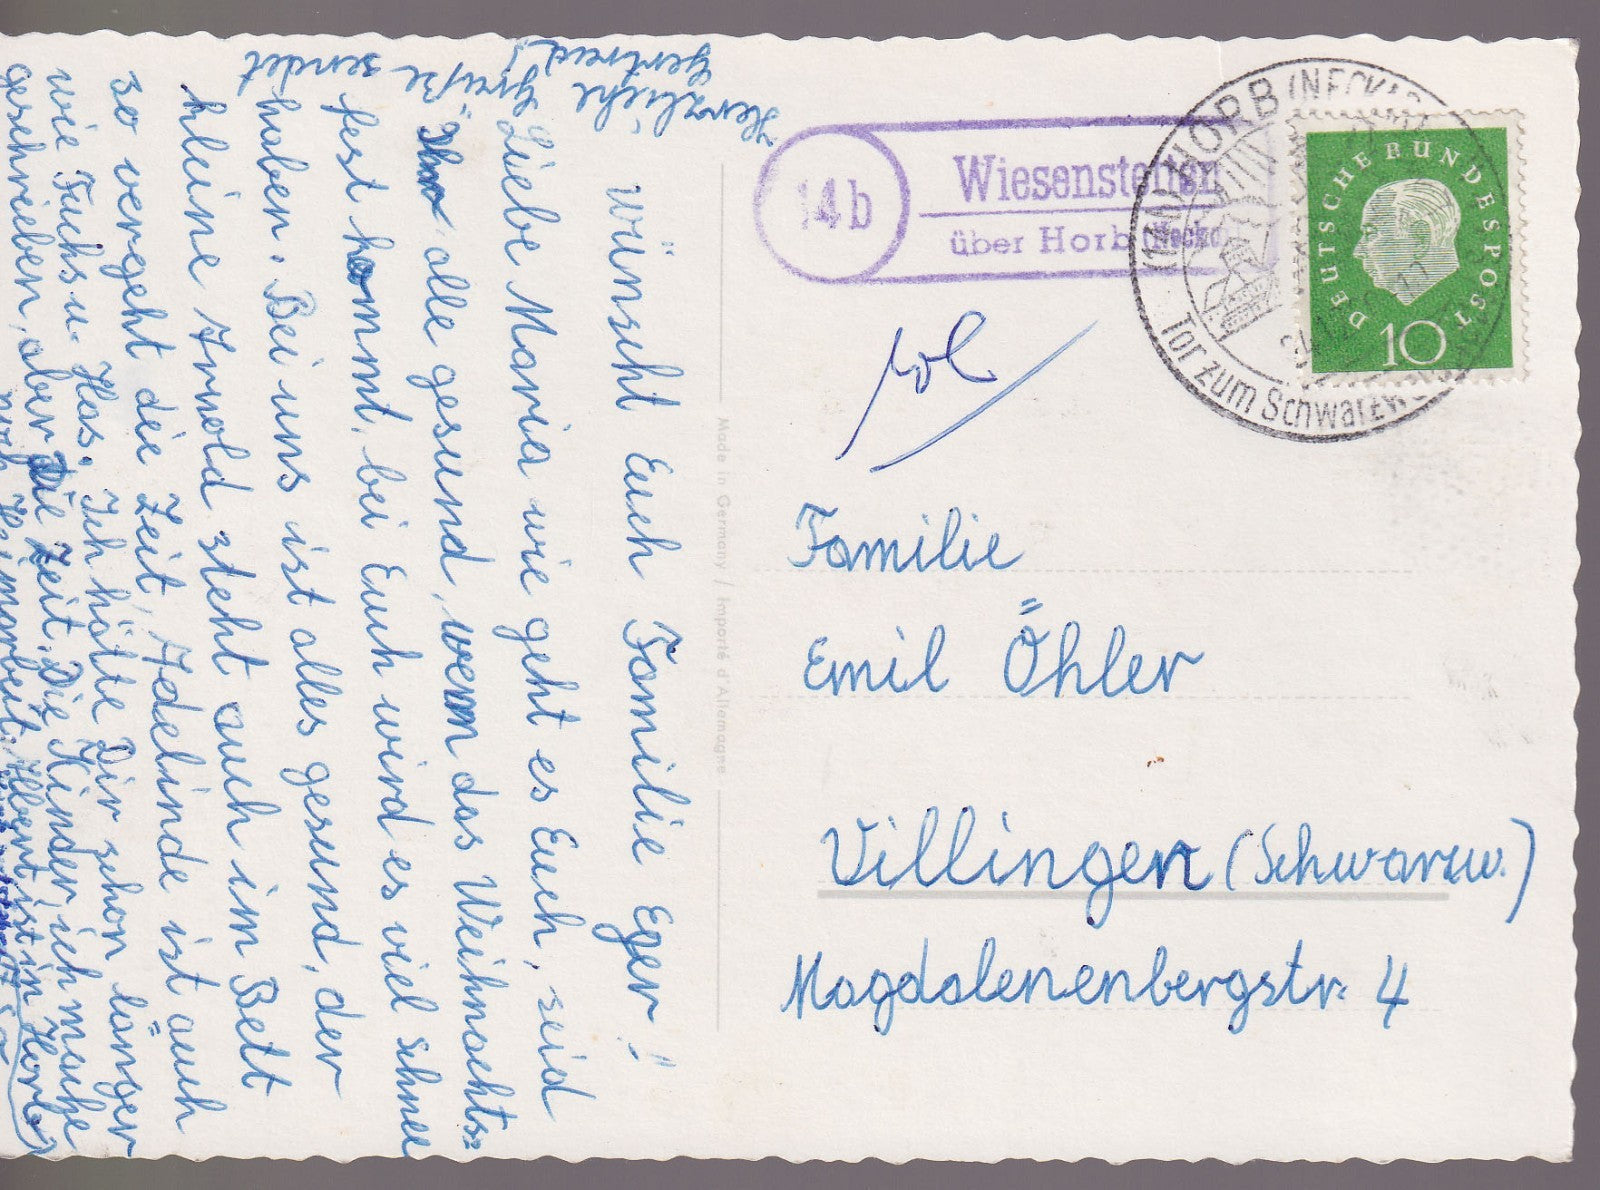 wünscht Euch Familie Eger!
Liebe Maria wie geht es Euch, seid
Ihr alle gesund, wenn das Weihnachts=
fest kommt, bei Euch wird es viel Schnee
haben. Bei uns ist alles gesund, der
kleine Arnold steht auch im Bett
so vergeht die Zeit, Adelinde ist auch
wie Fuchs u. Has. Ich hätte Dir schon länger
geschrieben, aber die Zeit. Die Kinder, ich mache
noch Heimarbeit. Albert ist in Horb
Herzliche Grüße sendet
Gertrud!
14b
Wiesenstetten
über Horb (Neckar)
HORB (NECKAR)
Tor zum Schwarzwald
DEUTSCHE BUNDESPOST
10
Made in Germany / Importé d'Allemagne
Familie
Emil Öhler
Villingen (Schwarzw.)
Magdalenenbergstr. 4